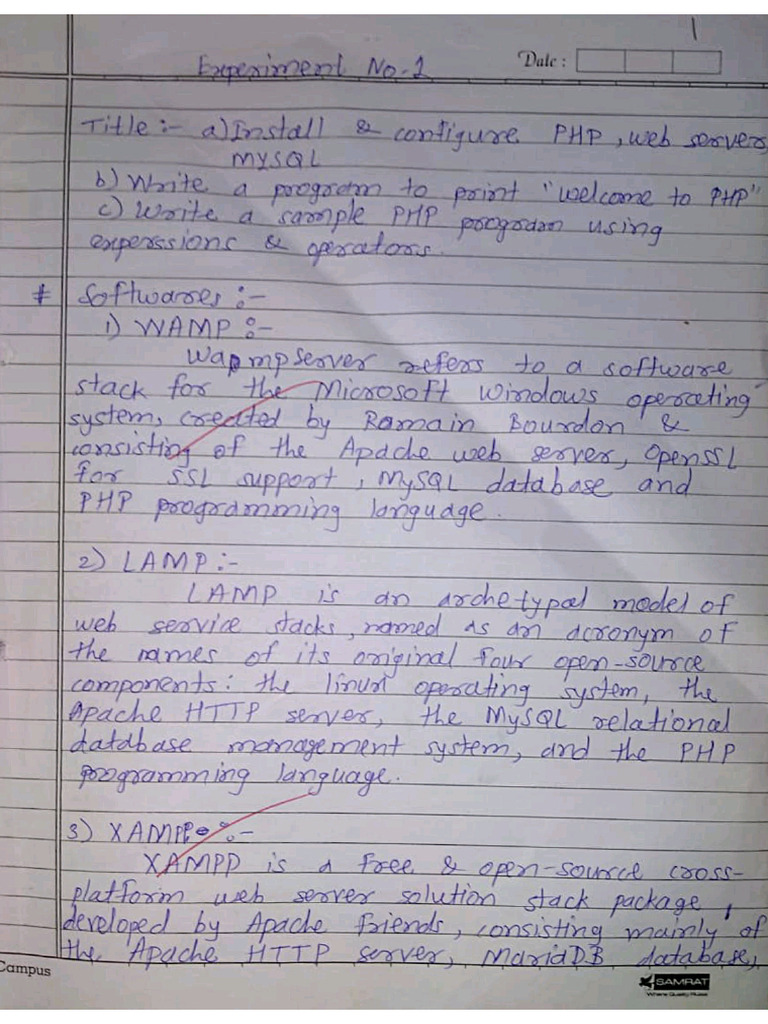 1
Experiment No-1
Date :
Title :- a) Install & configure PHP, web servers,
MYSQL
b) Write a program to print "Welcome to PHP"
c) Write a sample PHP program using
experssions & operators.
# Softwares :-
1) WAMP :-
Wampserver refers to a software
stack for the Microsoft Windows operating
system, created by Romain Bourdon &
consisting of the Apache web server, OpenSSL
for SSL support, MySQL database and
PHP programming language.
2) LAMP :-
LAMP is an archetypal model of
web service stacks, named as an acronym of
the names of its original four open-source
components: the linux operating system, the
Apache HTTP server, the MySQL relational
database management system, and the PHP
programming language.
3) XAMPP :-
XAMPP is a free & open-source cross-
platform web server solution stack package,
developed by Apache friends, consisting mainly of
the Apache HTTP server, MariaDB database,
Campus
SAMRAT